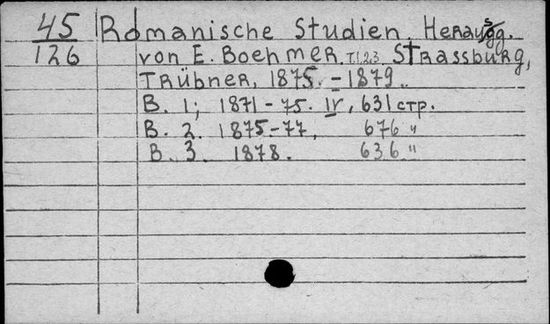 45 Romanische Studien. Herausg.
126 von E. Boehmer. T.1.2.3 Strassburg,
Trübner, 1875. - 1879.
B. 1; 1871-75. IV, 631 стр.
B. 2. 1875-77, 676 "
B. 3. 1878. 636 "